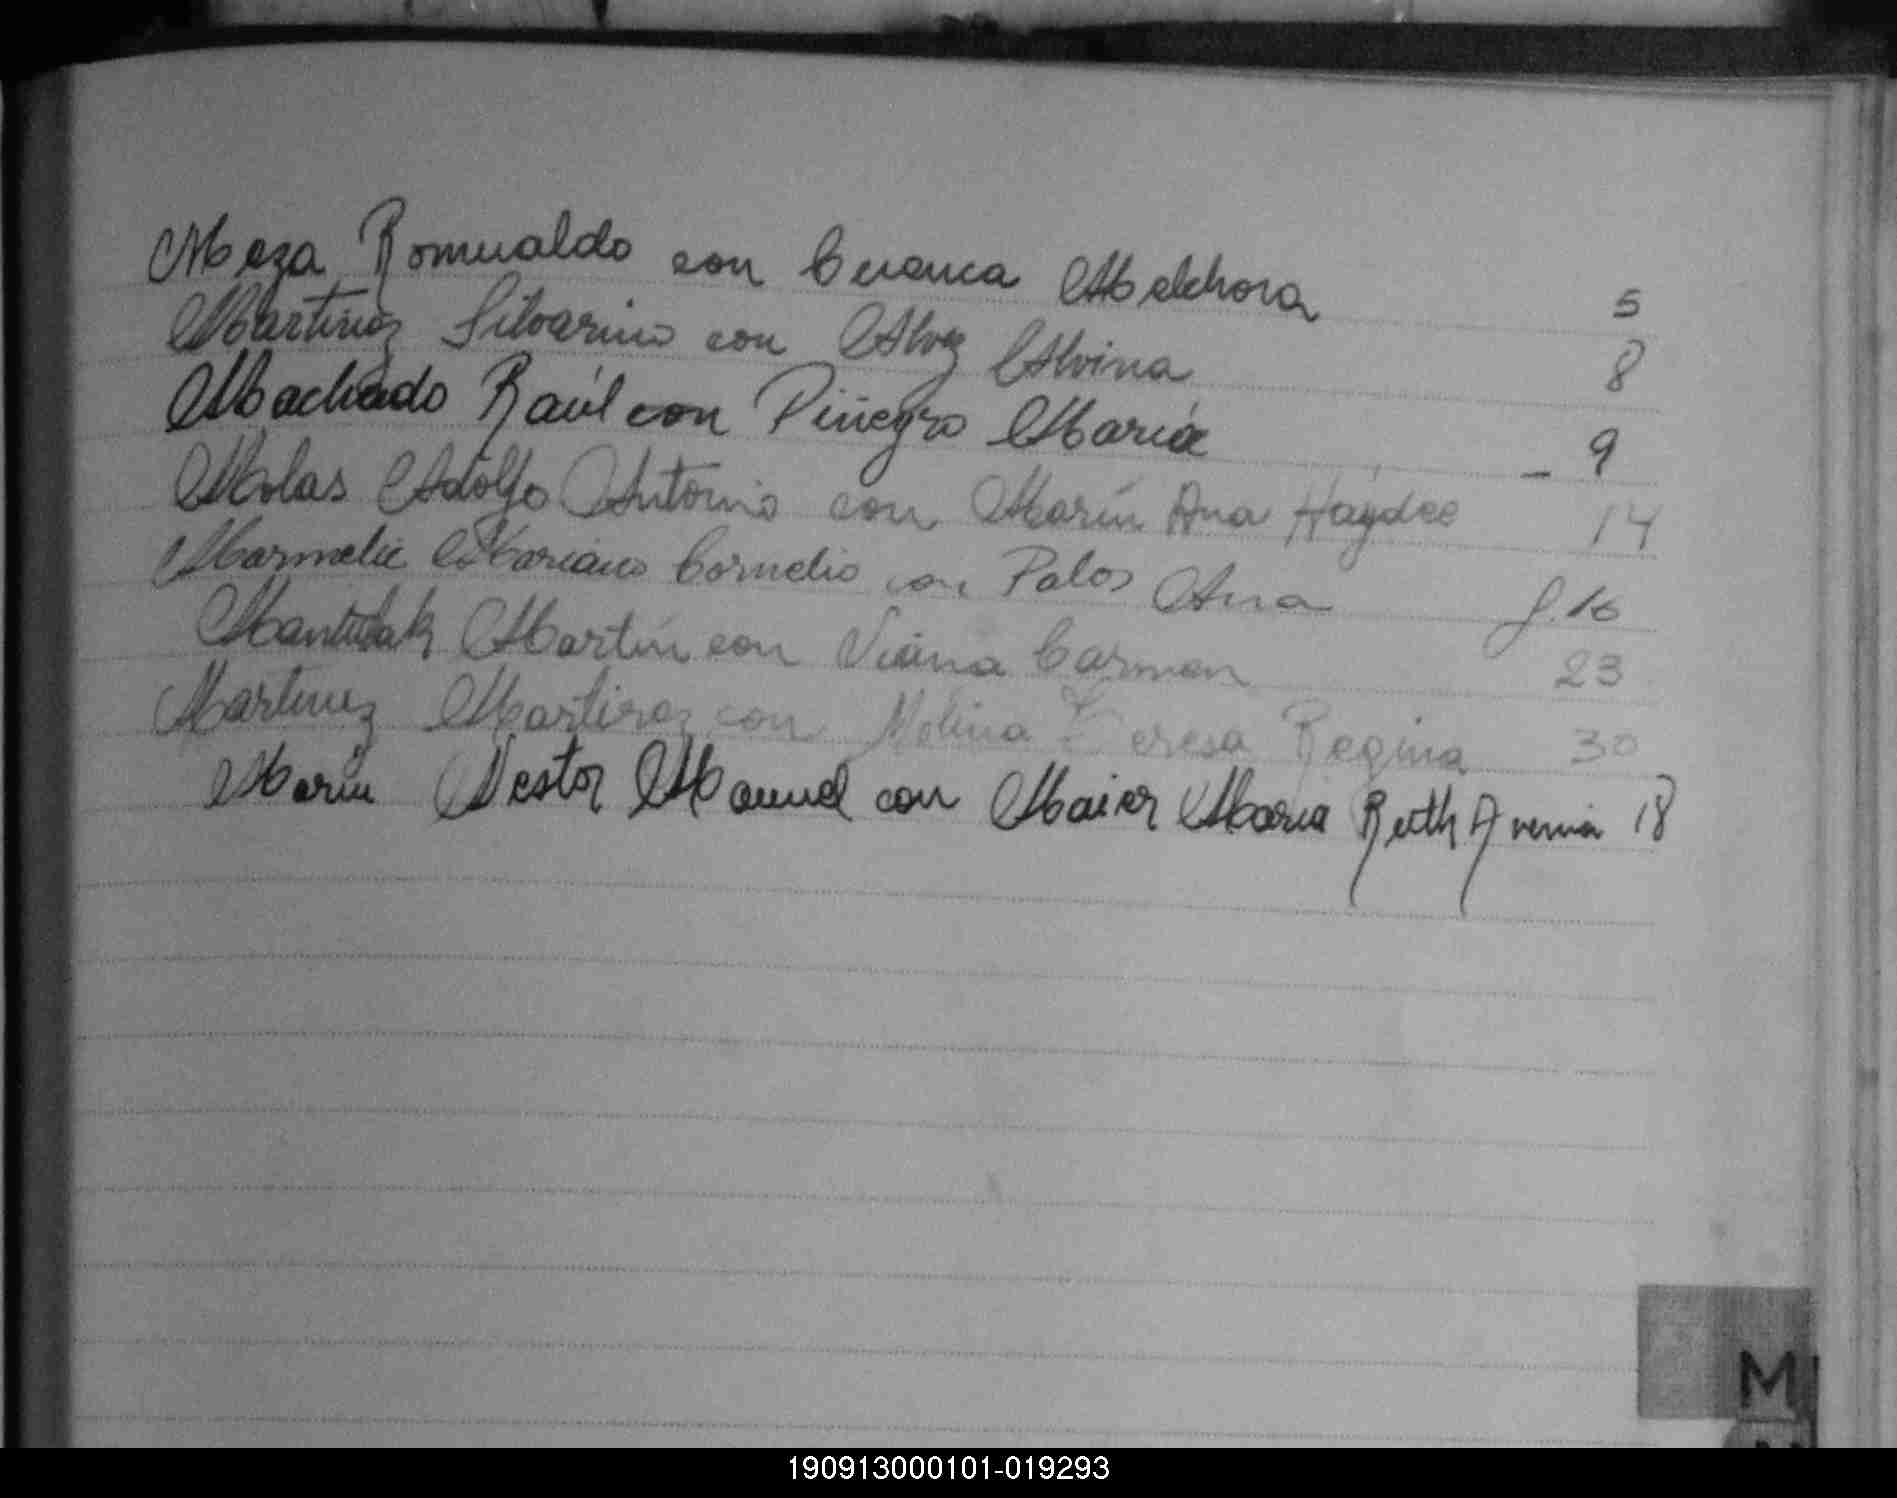 Meza Romualdo con Cuenca Melchora 5
Martinez Silvarino con Alvez Alvina 8
Machado Raúl con Piñeyro María - 9
Molas Adolfo Antonio con Marín Ana Haydee 14
Mariano Cornelio con Palos Ana f. 16
Martín con Viana Carmen 23
Martinez Martirez con Molina Teresa Regina 30
Marin Nestor Manuel con Maier Maria Ruth 18
M
190913000101-019293